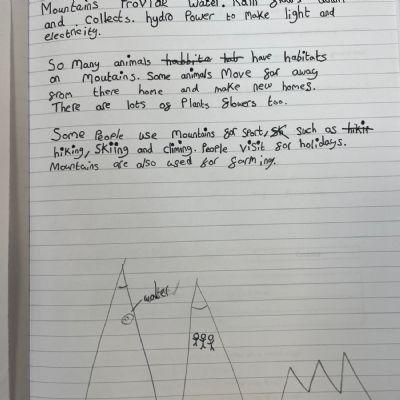 Mountains Provide water. Rain down
and collects. hydro Power to make light and
electricity.
So Many animals habbita hab have habitats
on Moutains. Some animals Move far away
from there home and make new homes.
There are lots of Plants flowers too.
Some People use Mountains for sport, sk such as hikin
hiking, skiing and climing. People visit for holidays.
Mountains are also used for farming.
water